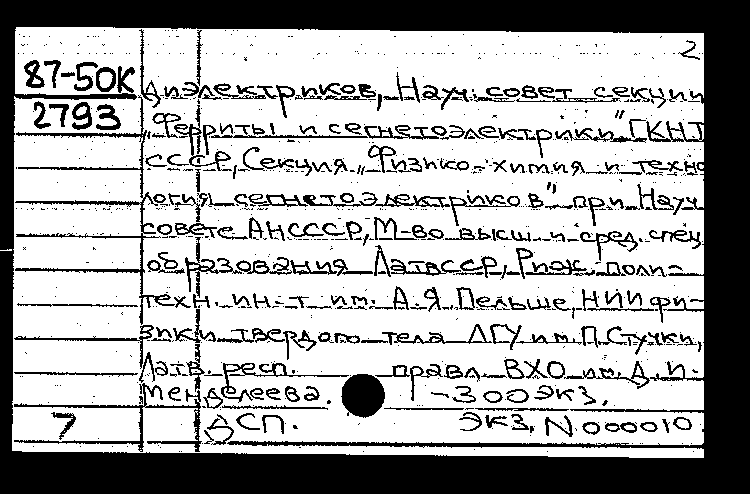 2
87-50К диэлектриков, Науч. совет секции
2793 „Ферриты и сегнетоэлектрики" ГКНТ
СССР, Секция „Физико-химия и техно
логия сегнетоэлектриков" при Науч
совете АНСССР, М-во высш и сред. спец
образования ЛатвССР, Риж. поли-
техн. ин-т им. А.Я Пельше, НИИ фи-
зики твердого тела ЛГУ им. П. Стучки,
Латв. респ. правл. ВХО им. Д. И.
Менделеева. -300 ЭКЗ.
7 ДСП. ЭКЗ. N 000010.